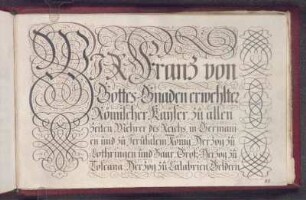 WIR Franz von
Gottes Gnaden erwehlter
Römischer Kayser zu allen
Zeiten Mehrer des Reichs, in Germani
en und zu Jerusalem König Herzog zu
Lothringen und Baar Groß-Herzog zu
Toscana Herzog zu Calabrien Geldern